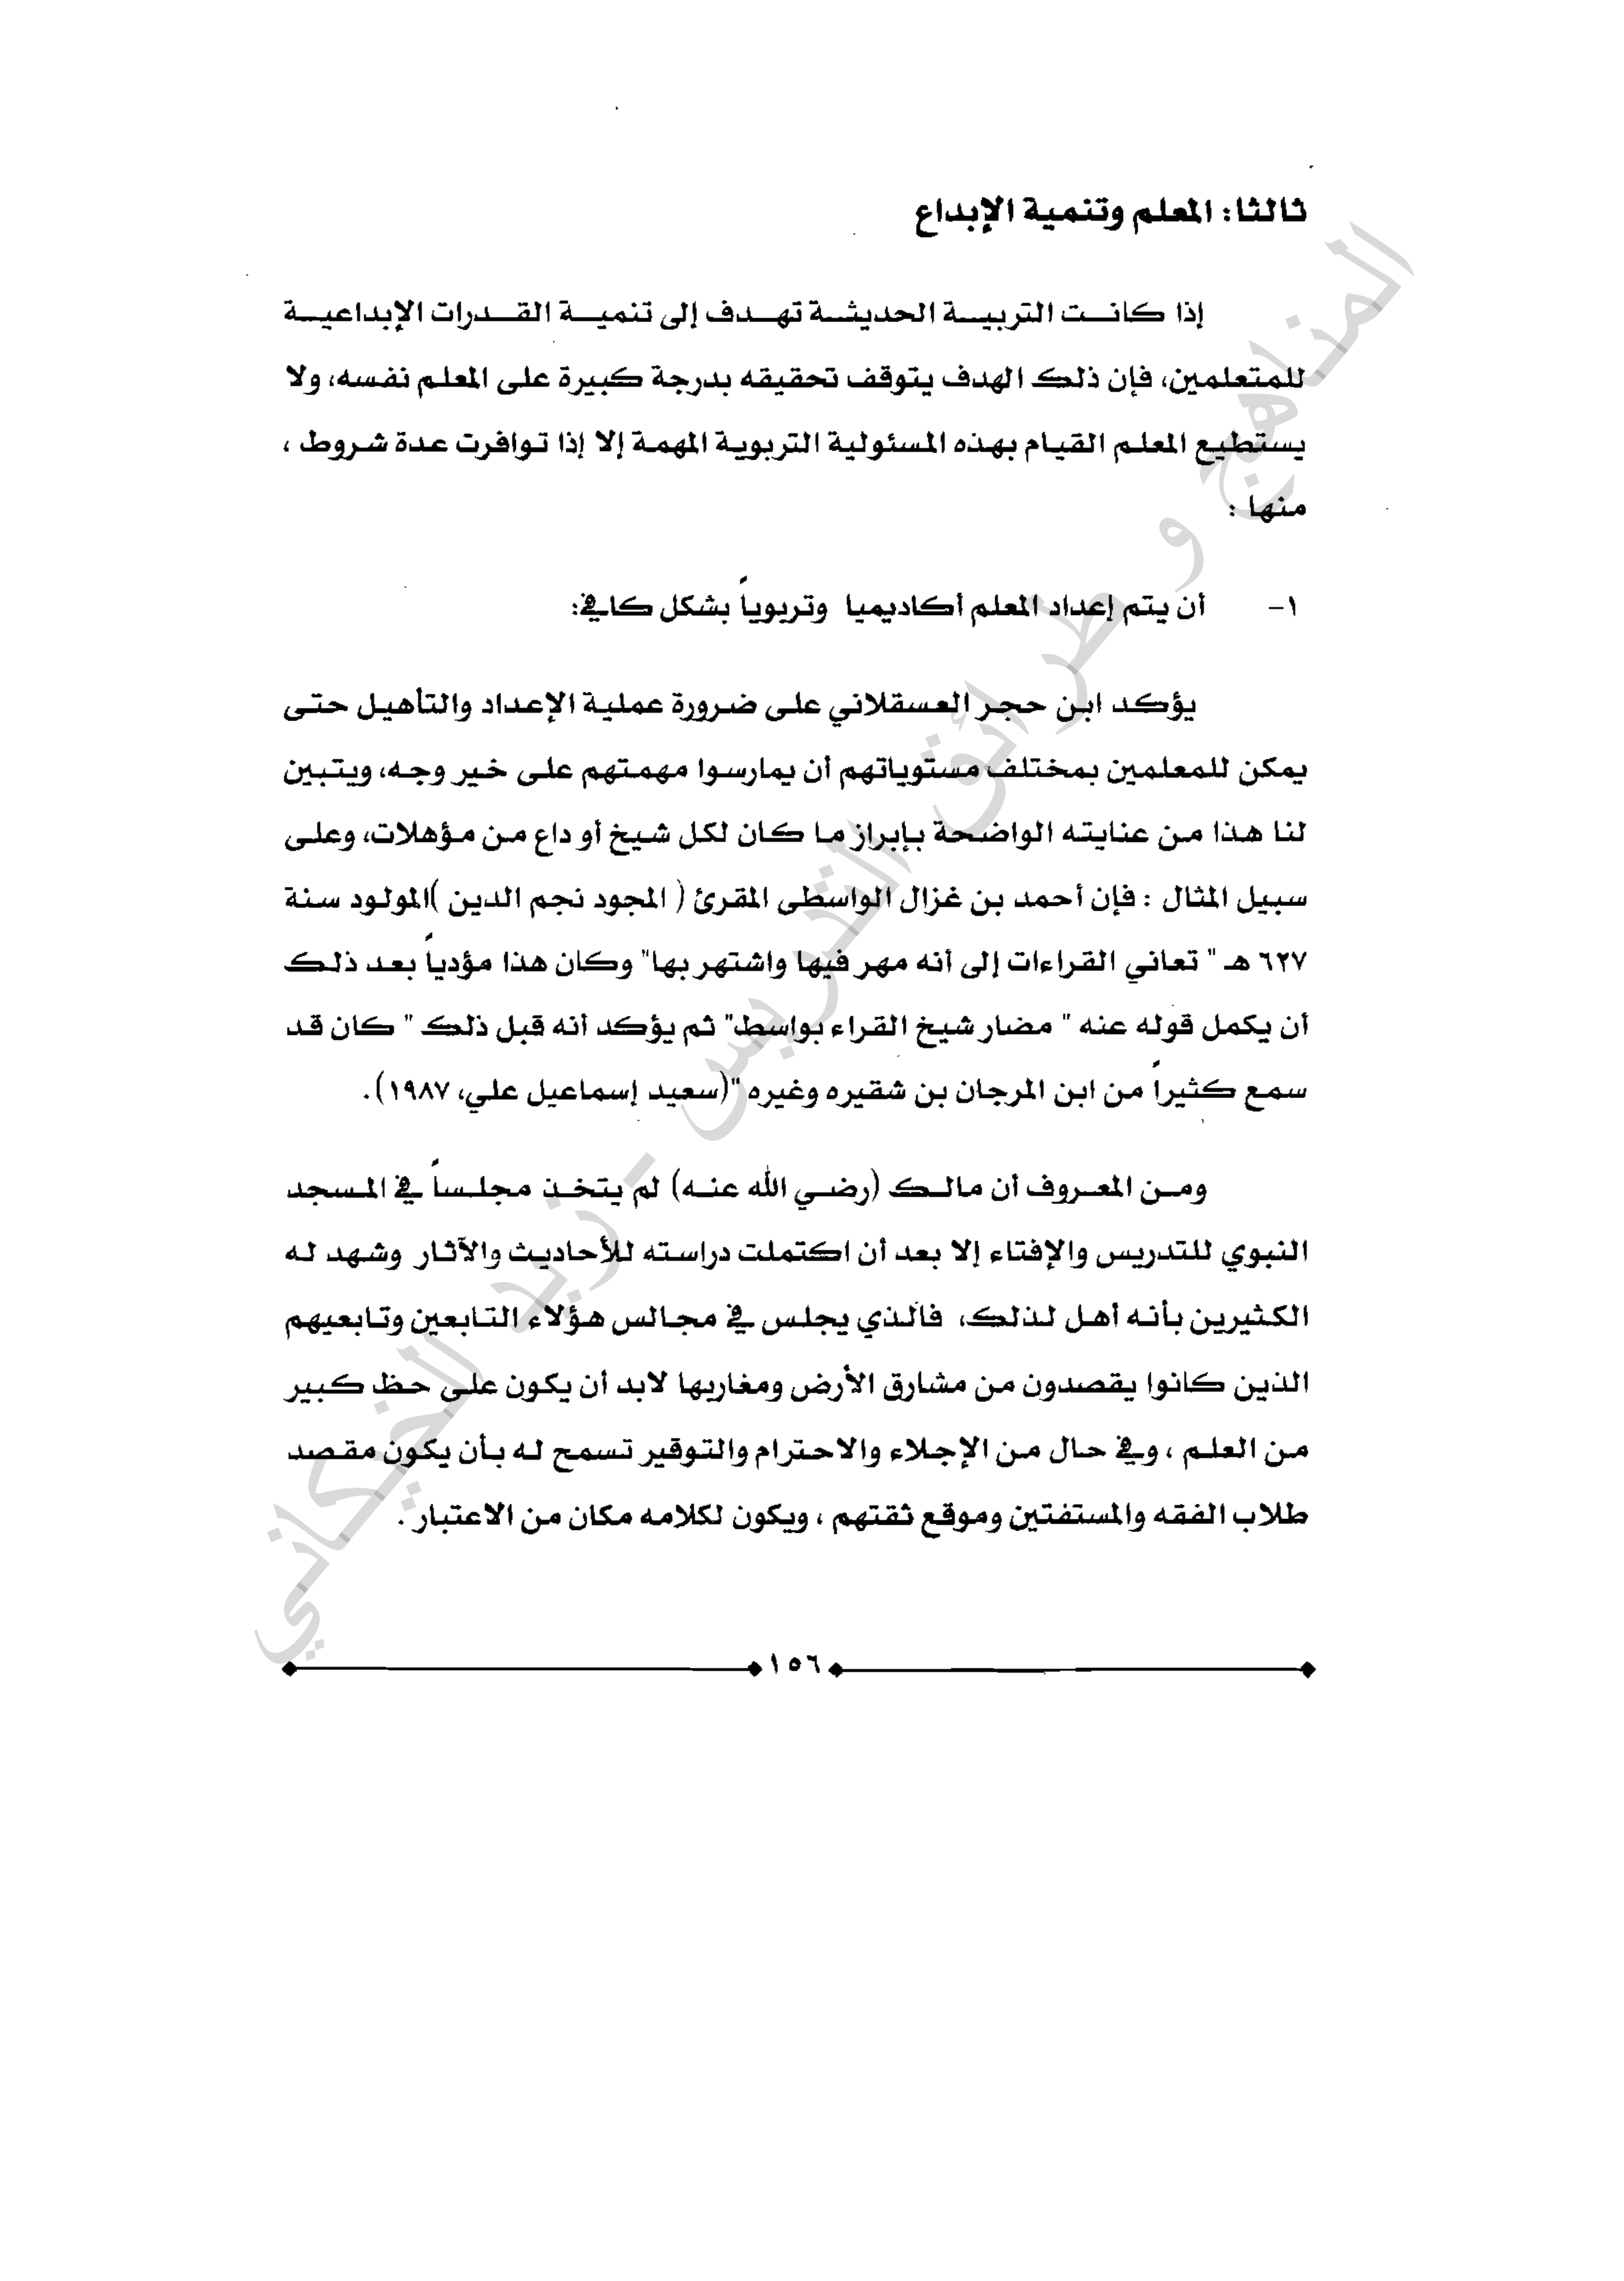 ثالثا: المعلم وتنمية الإبداع
إذا كانت التربية الحديثة تهدف إلى تنمية القدرات الإبداعية
للمتعلمين، فإن ذلك الهدف يتوقف تحقيقه بدرجة كبيرة على المعلم نفسه، ولا
يستطيع المعلم القيام بهذه المسئولية التربوية المهمة إلا إذا توافرت عدة شروط ،
منها :
١- أن يتم إعداد المعلم أكاديميا وتربوياً بشكل كافي:
يؤكد ابن حجر العسقلاني على ضرورة عملية الإعداد والتأهيل حتى
يمكن للمعلمين بمختلف مستوياتهم أن يمارسوا مهمتهم على خير وجه، ويتبين
لنا هذا من عنايته الواضحة بإبراز ما كان لكل شيخ أو داع من مؤهلات، وعلى
سبيل المثال : فإن أحمد بن غزال الواسطى المقرئ ( المجود نجم الدين )المولود سنة
٦٢٧ هـ " تعاني القراءات إلى أنه مهر فيها واشتهر بها" وكان هذا مؤدياً بعد ذلك
أن يكمل قوله عنه " مضار شيخ القراء بواسط" ثم يؤكد أنه قبل ذلك " كان قد
سمع كثيراً من ابن المرجان بن شقيره وغيره "(سعيد إسماعيل علي، ١٩٨٧).
ومن المعروف أن مالك (رضي الله عنه) لم يتخذ مجلساً في المسجد
النبوي للتدريس والإفتاء إلا بعد أن اكتملت دراسته للأحاديث والآثار وشهد له
الكثيرين بأنه أهل لذلك، فالذي يجلس في مجالس هؤلاء التابعين وتابعيهم
الذين كانوا يقصدون من مشارق الأرض ومغاربها لابد أن يكون على حظ كبير
من العلم ، وفي حال من الإجلاء والاحترام والتوقير تسمح له بأن يكون مقصد
طلاب الفقه والمستفتين وموقع ثقتهم ، ويكون لكلامه مكان من الاعتبار .
١٥٦
المناهج و طرائق التدريس - زيد الخيكاني